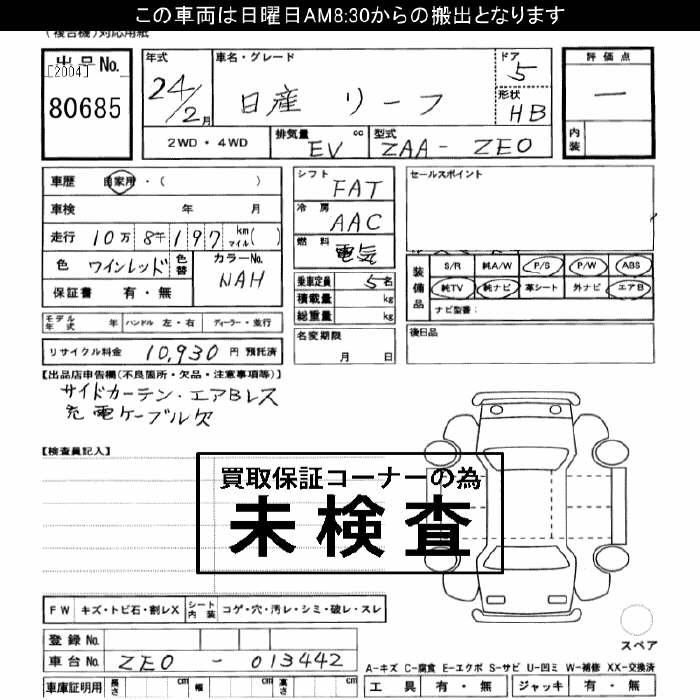 この車両は日曜日AM8:30からの搬出となります
(複合機)対応用紙
出品No.
[2004]
80685
年式
24/2月
車名・グレード
日産 リーフ
ドア
5
形状
HB
評価点
―
内装
2WD・4WD
排気量 cc
EV
型式
ZAA- ZE0
車歴 自家用・( )
車検 年 月
走行 10万 8千 197 km マイル( )
色 ワインレッド 色替 カラーNo. NAH
保証書 有・無
シフト
FAT
冷房
AAC
燃料
電気
乗車定員 5名
積載量 kg
総重量 kg
名変期限
月 日
セールスポイント
装備品
S/R 純A/W P/S P/W ABS
純TV 純ナビ 革シート 外ナビ エアB
ナビ型番:
後日品
モデル年式 年 ハンドル 左・右 ディーラー・並行
リサイクル料金 10,930 円 預託済
【出品店申告欄(不良箇所・欠品・注意事項等)】
サイドカーテン・エアBレス
充電ケーブル欠
【検査員記入】
買取保証コーナーの為
未検査
FW キズ・トビ石・割レX シート内装 コゲ・穴・汚レ・シミ・破レ・スレ
登録No.
車台No. ZE0 - 013442
車庫証明用 長さ cm 幅 cm 高さ cm
スペア
A-キズ C-腐食 E-エクボ S-サビ U-凹ミ W-補修 XX-交換済
工具 有・無 ジャッキ 有・無